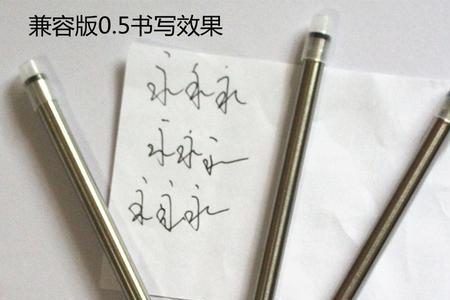 兼容版0.5书写效果
永永永
永永永
永永永